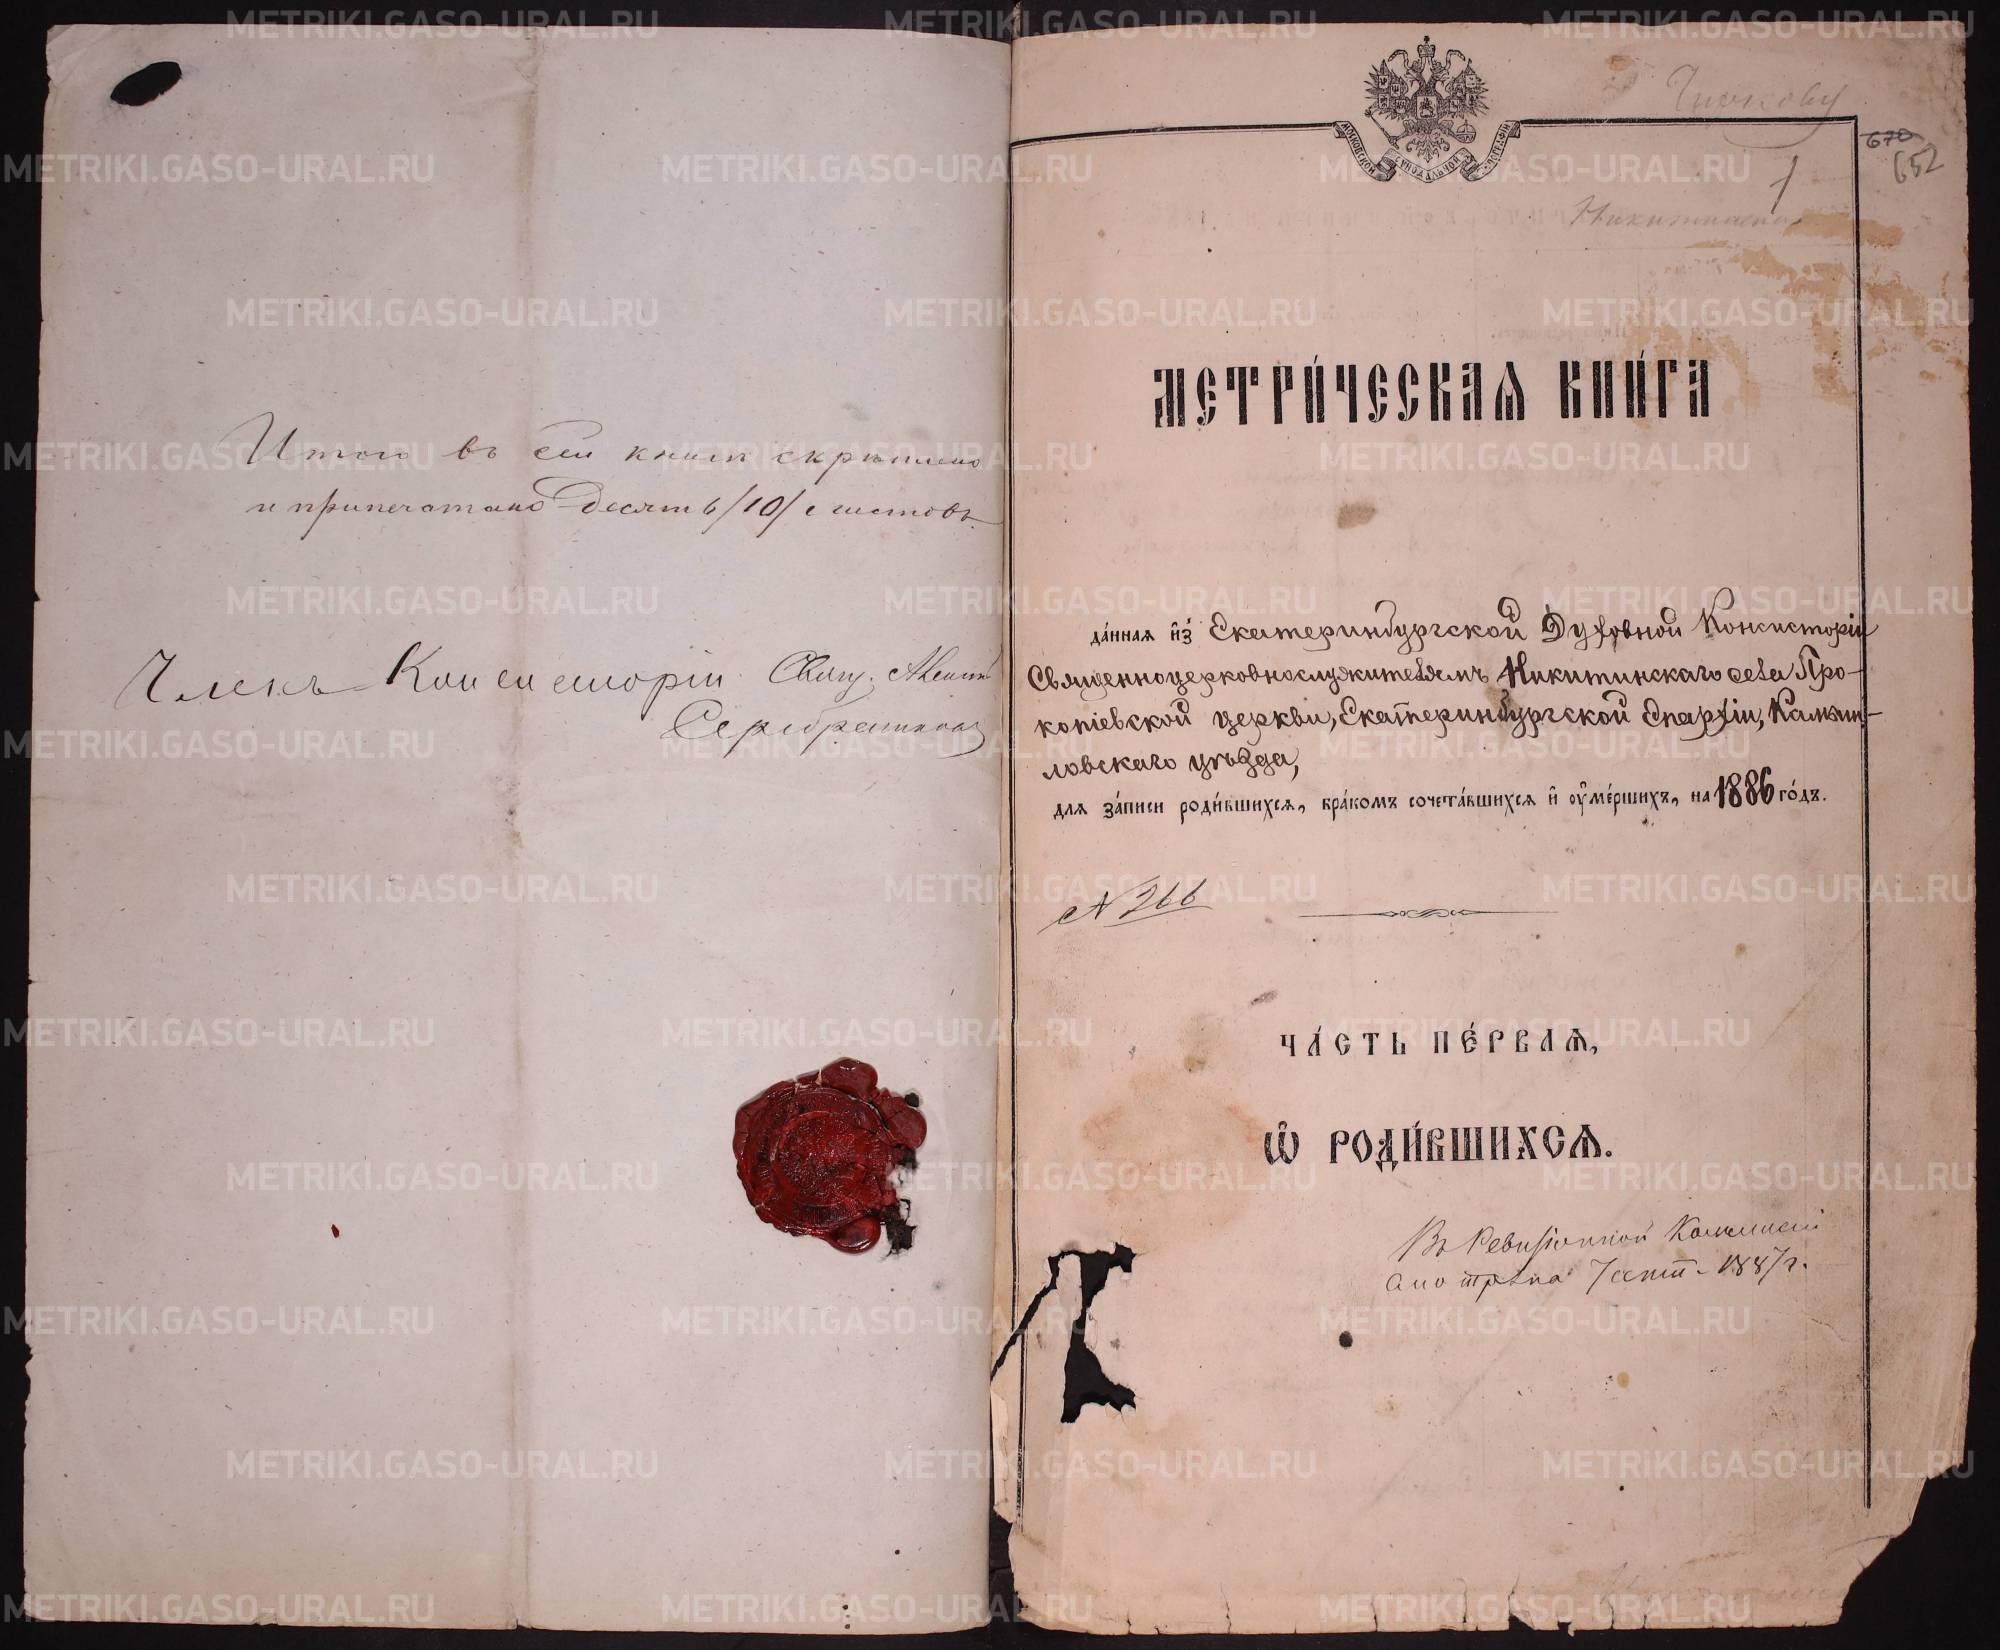 Итого въ сей книгѣ скрѣплено
и припечатано десять /10/ листовъ.
Членъ Консисторіи Свящ.
Серебренниковъ
Чиркову
670
652
1
Никитинское
МЕТРИ́ЧЕСКАѦ КНИ́ГА
да́нная и҆з̾ Екатеринбургской Духовной Консисторіи
Священноцерковнослужителямъ Никитинскаго села Про-
копіевской церкви, Екатеринбургской Епархіи, Камыш-
ловскаго уѣзда,
для за́писи роди́вшихсѧ, бра́комъ сочета́вшихсѧ и҆ оу҆ме́ршихъ, на 1886 го́дъ.
№ 266
ЧА́СТЬ ПЕ́РВАѦ,
Ѡ҆ РОДИ́ВШИХСѦ.
Въ Ревизіонной Коммисіи
смотрѣна 7 сент. 1887 г.
METRIKI.GASO-URAL.RU